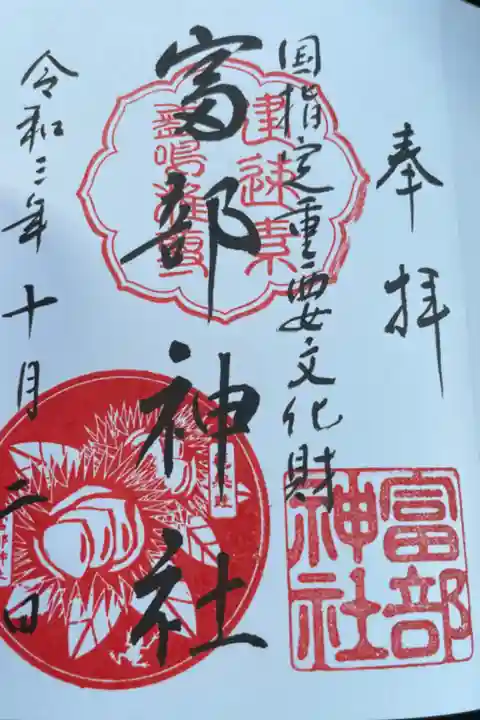 奉拝
国指定重要文化財
富部神社
令和三年十月二日
富部
神社